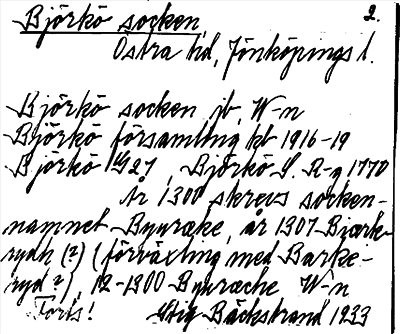 Björkö socken, 2.
Östra hd, Jönköpings l.
Björkö socken jb, W-n
Björkö församling kb 1916-19
Björkö GS 27, Björkö S. R-g 1770
År 1300 skrevs socken-
namnet Byuræke, år 1307 Biærk-
rydh (?) (förväxling med Barke-
ryd?), 12-1300 Byuræche W-n
Forts! Stig Bäckstrand 1933